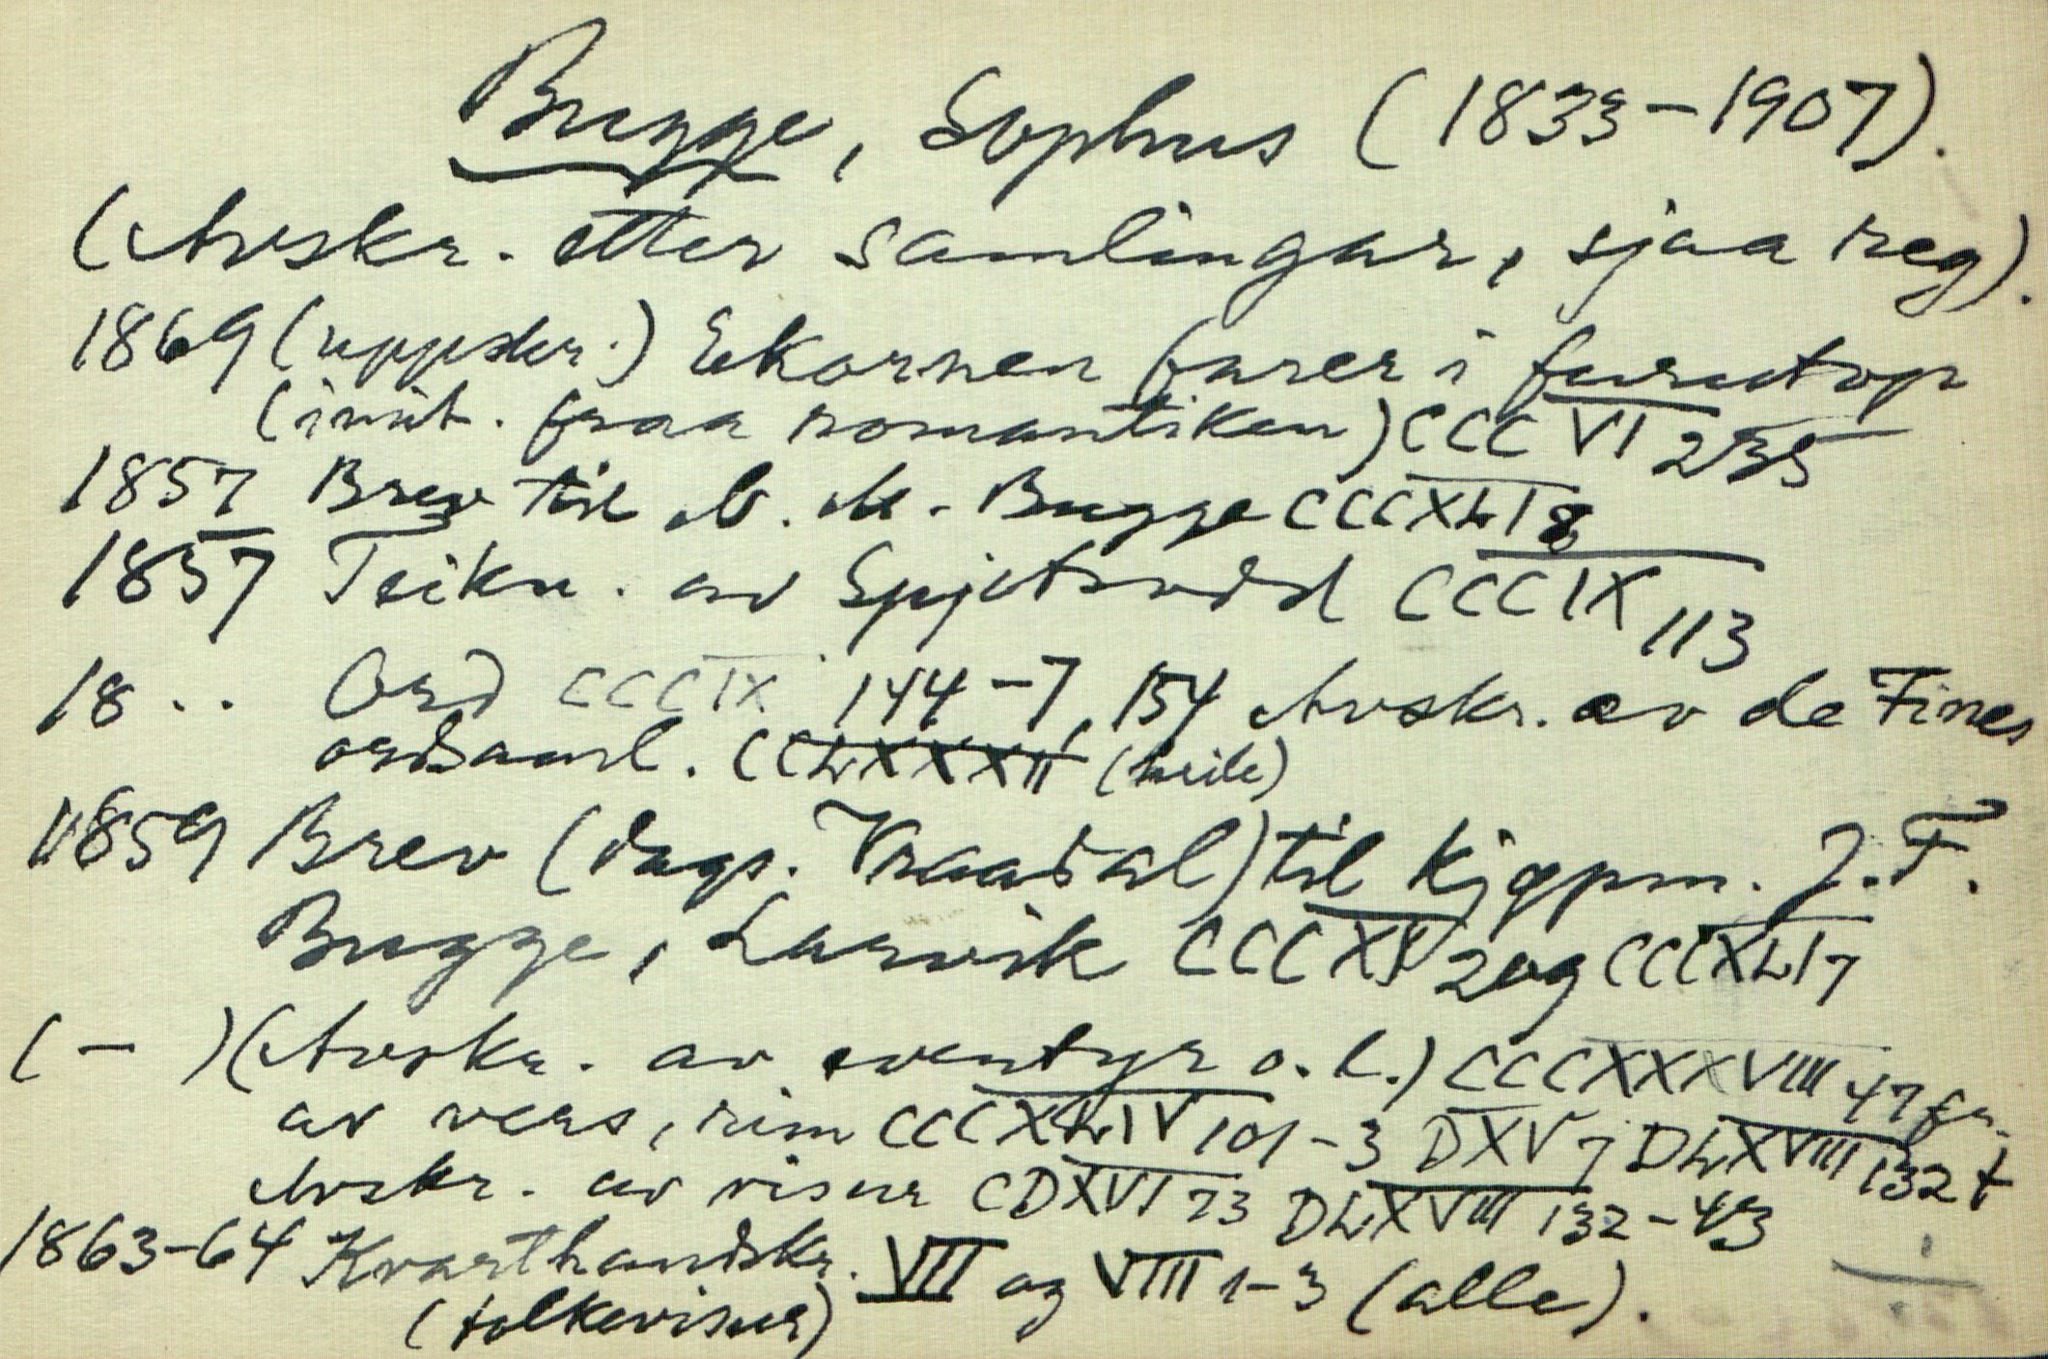 Bugge, Sophus (1833-1907).
(Avskr. etter samlingar, sjaa reg).
1869 (uppskr.) Ekornen farer i furutop
fraa romantiken) CCCVI 235
1857 Brev til M. Bugge CCCXLI 8
1857 Teikn. av CCCIX 113
18 .. Ord CCCIX 144-7, 154 Avskr. av de Fines
ordsaml. CCLXXXII (heile)
1859 Brev (dags. Kraadal) til kjøpm. J. F.
Bugge, Larvik CCCXV 2 og CCCXLI 7
( - ) (Avskr. av eventyr o. l.) CCCXXXVIII 47 fr.
av vers, rim CCCXLIV 101-3 DXV 7 DLXVIII 132 f
Avskr. av visur CDXVI 73 DLXVIII 132-43
1863-64 Kvarthandskr. VII og VIII 1-3 (alle).
(folkevisur)